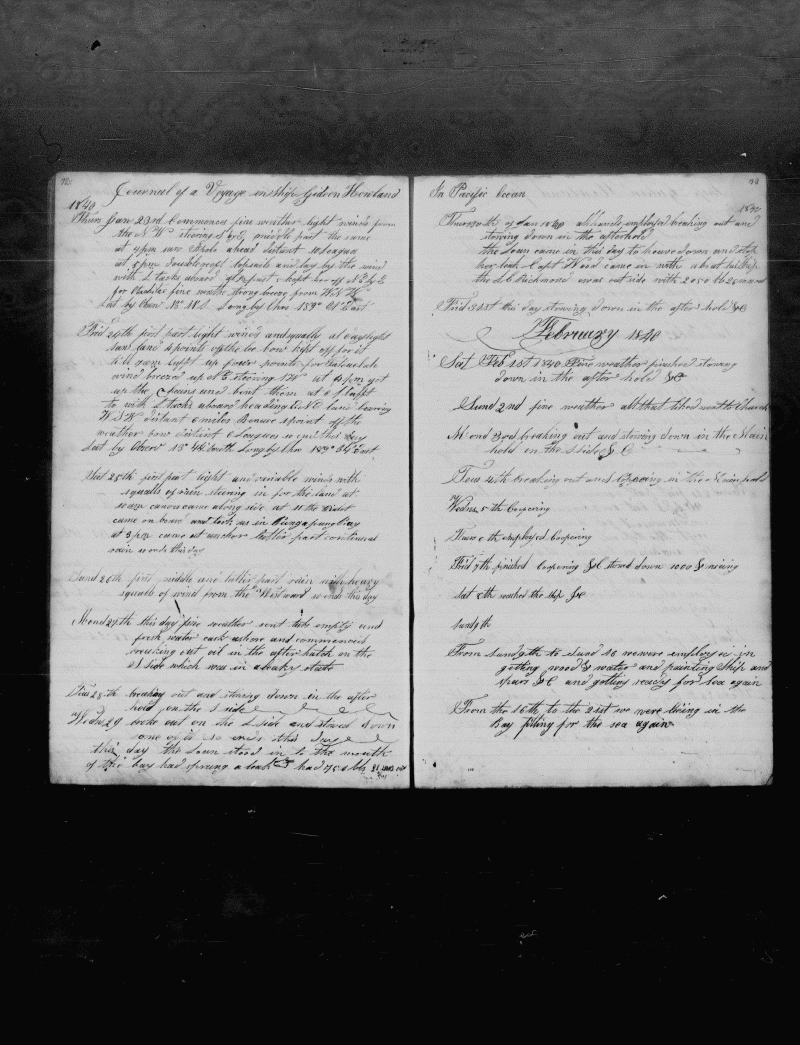 Journal of a Voyage in Ship Gideon Howland
1840
Thurs Jan 23rd Commences fine weather light winds from
the N W steering S and middle part the same
at 4 pm saw ahead distant 10 leagues
at 8 pm doublereef topsails and lay by the wind
with L tacks aboard at past 1 kept her off at E by E
for fine weather strong breeze from
Lat by Obser 18° Long by Chro 173° East
Frid 24th first part light winds and squally at daylight
saw land 4 points off the lee bow kept off for it
till 9 am kept up four points for
wind breezed up at E steering at 4 pm got
up the chains and bent them at 6
to with L tacks aboard heading land bearing
W S W distant 6 miles point off the
weather bow distint 6 leagues so ends this day
Lat by Obser 18° 42 South Long by Chro 173° 34 East
Sat 25th first part light and variable winds with
squalls of rain steering in for the land at
10 am canoes came along side at 11 the
came on board and took us in bay
at 3 pm came at anchor latter part continual
rain so ends this day
Sund 26th first middle and latter part rain with heavy
squalls of wind from the Westward so ends this day
Mond 27th this day fine weather sent empty and
fresh water cask ashore and commenced
breaking out oil in the after hatch on the
S side which was in a leaky state
Tues 28th breaking out and stowing down in the after
hold on the S side
Wedns 29 broke out on the L side and stowed down
some of it so ends this day
this day the Loan stood in to the mouth
of the bay had sprung a leak had 750 bbls
In Pacific Ocean
1840
Thurs 30th of Jan 1840 all hands employed breaking out and
stowing down in the afterhold
the Loan came in this day to heave down and stop
her leak Capt Wood came in with a boat his Ship
the L C Richmond was outside with 2050 bbls on board
Frid 31st this day stowing down in the after hold &c
February 1840
Sat Feb 1st 1840 Fine weather finished stowing
down in the after hold &c
Sund 2nd fine weather all that liked went to Church
Mond 3rd breaking out and stowing down in the Main
hold on the S side &c
Tues 4th breaking out and coopering in the Main hold
Wedns 5th Coopering
Thurs 6th employed Coopering
Frid 7th finished Coopering &c stowed down 1000
Sat 8th washed the ship &c
Sund 9th
From Sund 9th to Sund 16 we were employed in
getting wood & water and painting Ship and
spars &c and getting ready for sea again
From the 16th to the 21st we were lieing in the
Bay fitting for the sea again